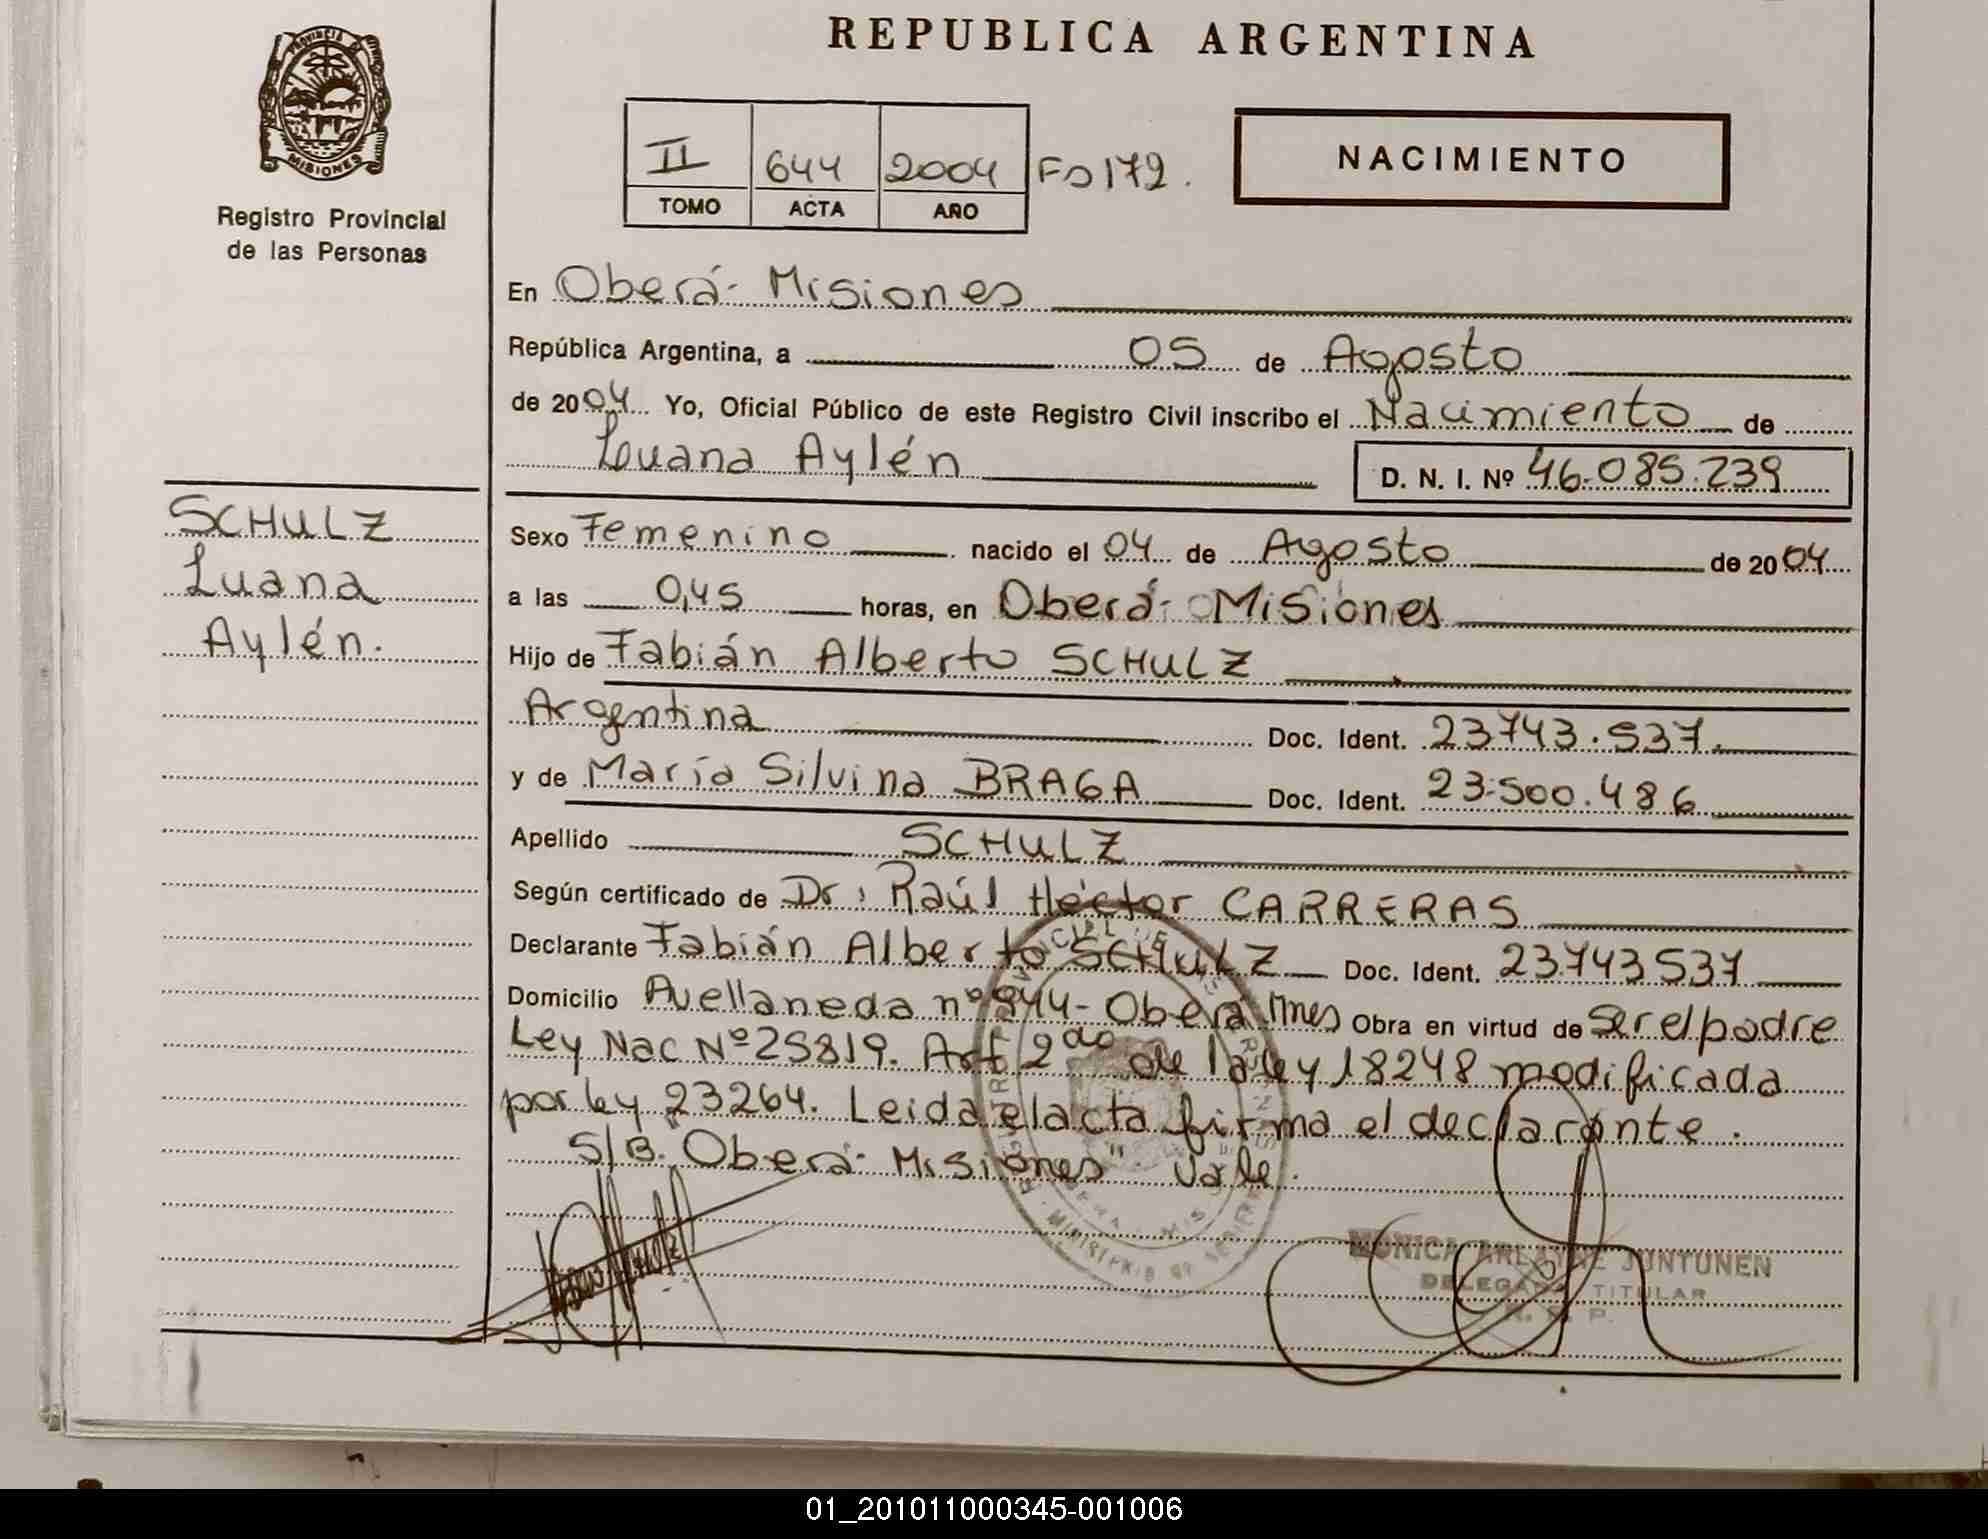 REPUBLICA ARGENTINA
PROVINCIA DE
MISIONES
Registro Provincial
de las Personas
II 644 2004 Fo 172.
TOMO ACTA AÑO
NACIMIENTO
En Oberá- Misiones
República Argentina, a 05 de Agosto
de 2004 Yo, Oficial Público de este Registro Civil inscribo el Nacimiento de
Luana Aylén D. N. I. Nº 46.085.239
SCHULZ
Luana
Aylén.
Sexo Femenino nacido el 04 de Agosto de 2004
a las 0,45 horas, en Oberá- Misiones
Hijo de Fabián Alberto SCHULZ
Argentina Doc. Ident. 23743.537.
y de María Silvina BRAGA Doc. Ident. 23.500.486
Apellido SCHULZ
Según certificado de Dr. Raúl Héctor CARRERAS
Declarante Fabián Alberto SCHULZ Doc. Ident. 23.743537
Domicilio Avellaneda nº 944- Oberá Mnes Obra en virtud de Ser el padre
Ley Nac Nº 25819. Art 2do de la ley 18248 modificada
por ley 23264. Leida el acta firma el declarante.
S/B. "Oberá- Misiones" Vale.
MONICA ARLAYNE JUNTUNEN
DELEGADA TITULAR
R. P. P.
01_201011000345-001006